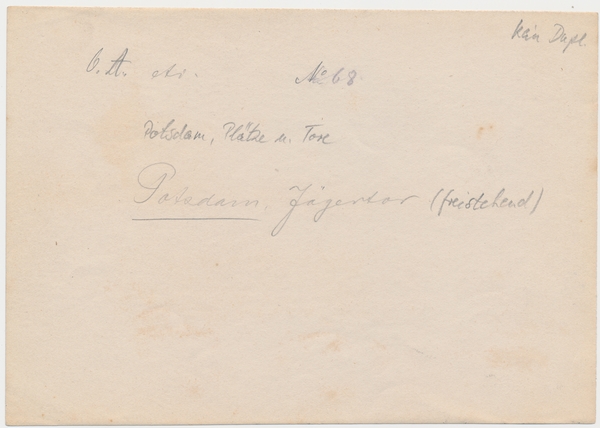 Kein Dupl.
O. A. No 68
Potsdam, Plätze u. Tore
Potsdam, Jägertor (freistehend)